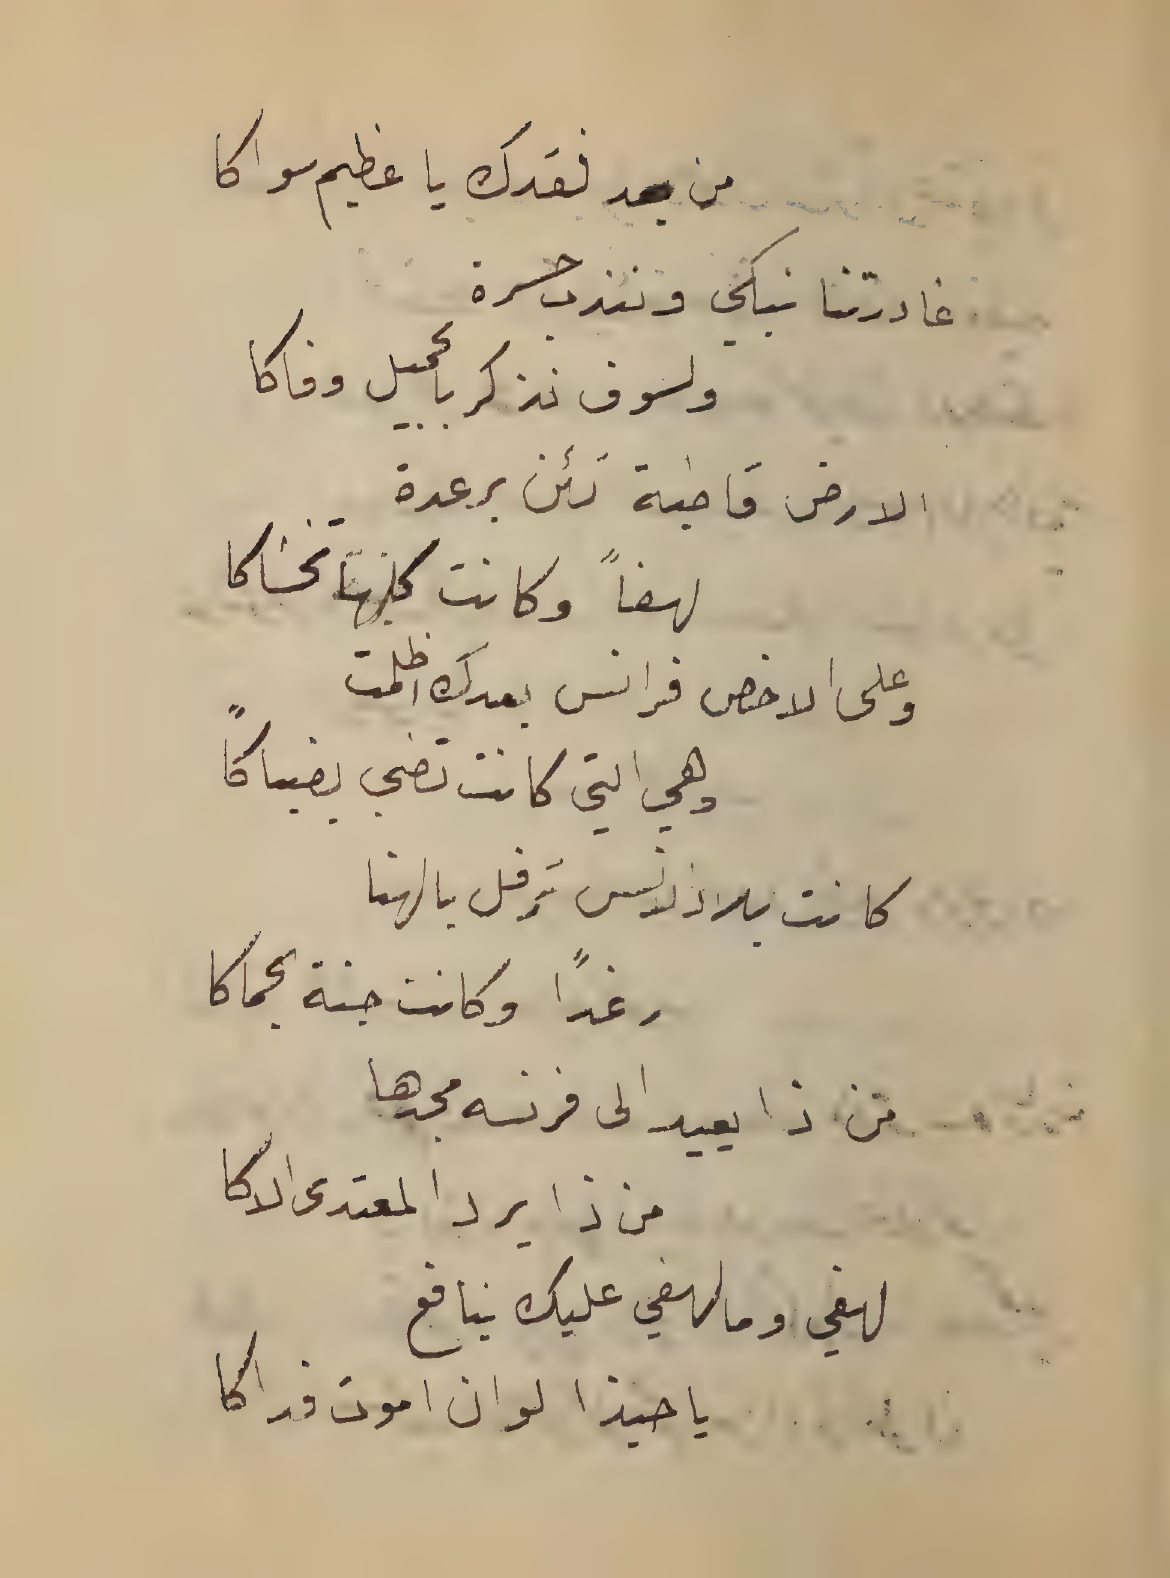 من بعد فقدك يا عظيم سواكا
غادرتنا نبكي ونندب حسرة
ولسوف نذكر بالجميل وفاكا
الارض قاطبة تَئن برعدة
لهفاً وكانت كلها تخشاكا
وعلى الاخص فرانس بعدك اظلمت
وهي التي كانت تضي بضياكاً
كانت بلاد تَرفل بالهنا
رغدًا وكانت جنة بحماكا
من ذا يعيد الى فرنسه مجدها
من ذا يرد المعتدى الاكا
لهفي وما لهفي عليك بنافع
يا حبذا لو ان اموت فداكا